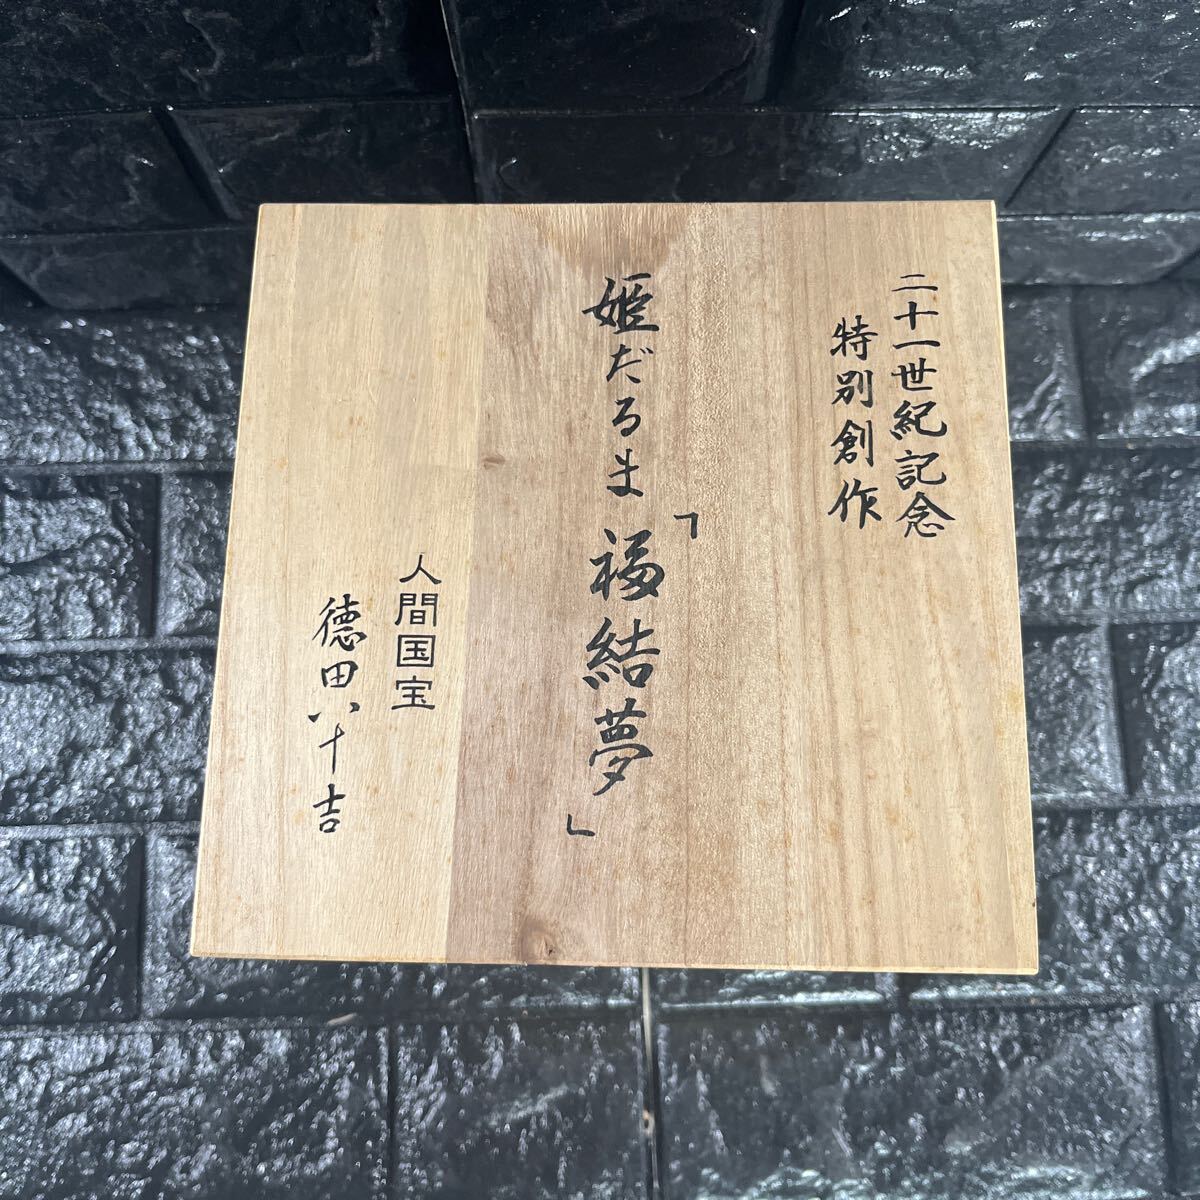 二十一世紀記念
特別創作
姫だるま「福結夢」
人間国宝
徳田八十吉